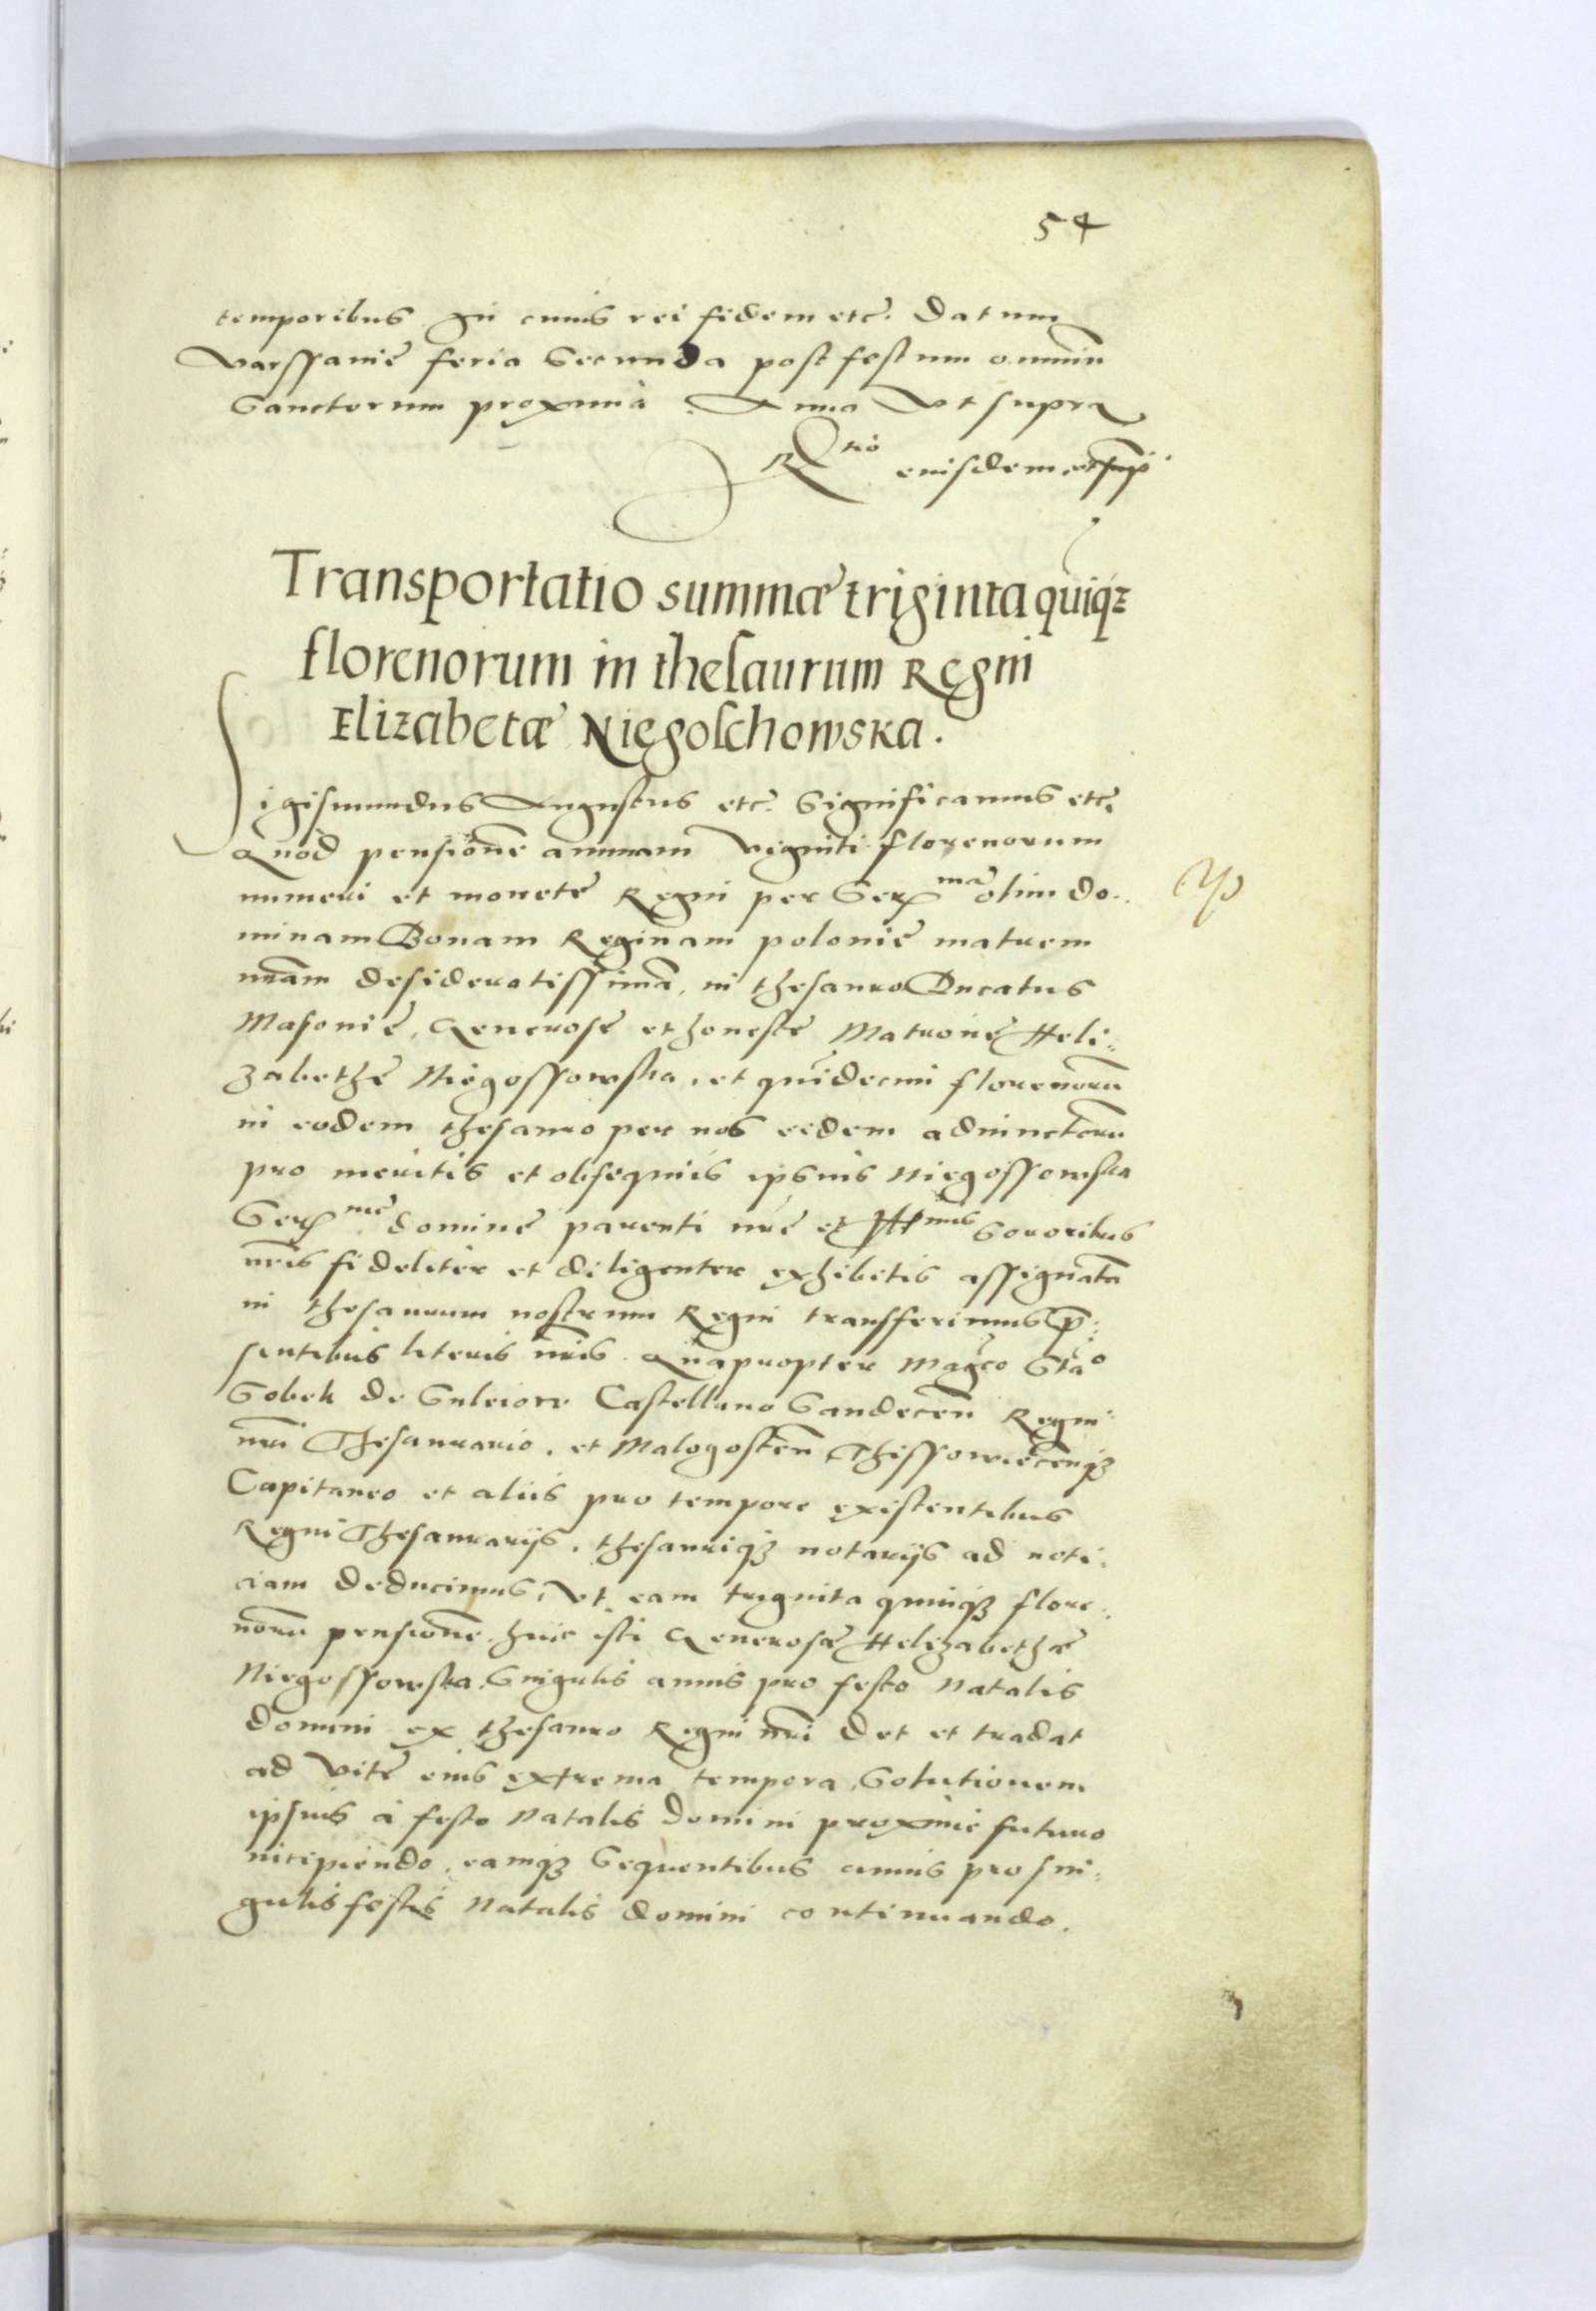 54
temporibus In cuius rei fidem etc̃. Datum
Varssavie feria Secunda post festum omniũ
Sanctorum proxima. Anno Vt supra
R^tio eiusdem
Transportatio summæ triginta quiq́ꝫ
florenorum in thesaurum Regni
Elizabetæ Niegoschowska.
Sigismundus Augustus etc̃. Significamus etc̃.
Quod pensionẽ annuam viginti florenorum
numeri et monetę Regni per Ser^mã olim do..
minam Bonam Reginam polonię matrem
nr̃am desideratissimã, in thesauro Ducatus
Masovię, Generosę et honestę Matronę Heli:
zabethę Niegossowska, et quĩdecim florenorũ
in eodem thesauro per nos eędem adiunctorũ
pro meritis et obsequiis ipsius Niegossowska
Ser^mę dominę parenti nr̃ę et Ill^mis Sororibus
nr̃is fideliter et diligenter exhibitis assignatã
in thesaurum nostrum Regni transferimus p̃:
sentibus literis nr̃is. Quapropter Mag̃co Sta^o
Sobek de Suleiow Castellano Sandecen̄ Regni
nr̃i Thesaurario, et Malogosten̄ Thissowiecen̄qꝫ
Capitaneo et aliis pro tempore existentibus
Regni Thesaurarijs, thesauriqꝫ notarijs ad noti:
ciam deducimus, Vt eam triginta quinqꝫ flore:
norũ pensionẽ huic isti Generosæ Helizabethæ
Niegossowska Singulis annis pro festo Natalis
domini ex thesauro Regni nr̃i det et tradat
ad vitę eius extrema tempora, Solutionem
ipsius à festo Natalis Domini proximè futuro
incipiendo, eamqꝫ Sequentibus annis pro sin:
gulis festis Natalis domini continuando.